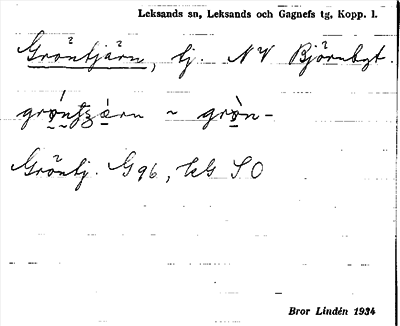 Leksands sn, Leksands och Gagnefs tg, Kopp. l.
Gröntjärn, tj. NV Björnbgt.
grøntʒærn ~ grøn-
Gröntj. G 96, kG SO
Bror Lindén 1934